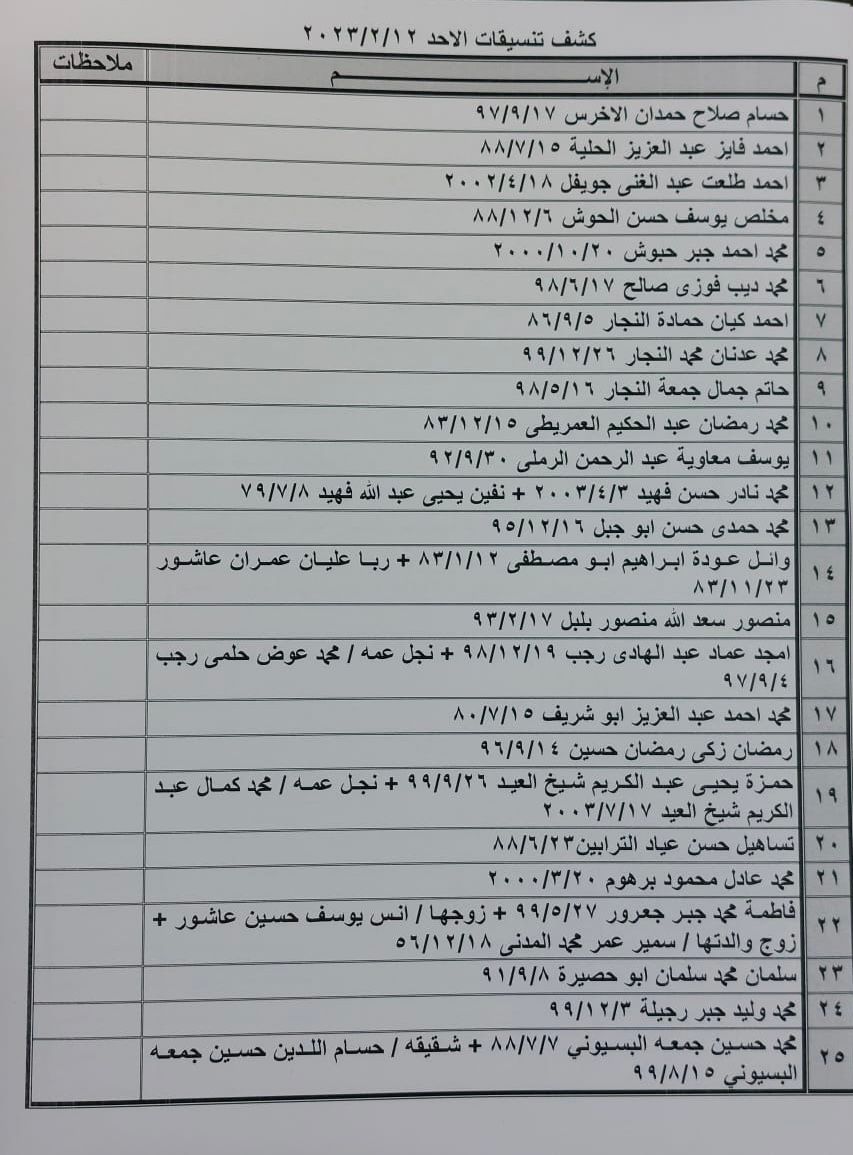 كشف تنسيقات الاحد ٢٠٢٣/٢/١٢
م الإســـــــــم ملاحظات
١ حسام صلاح حمدان الاخرس ٩٧/٩/١٧
٢ احمد فايز عبد العزيز الحلية ٨٨/٧/١٥
٣ احمد طلعت عبد الغنى جويفل ٢٠٠٢/٤/١٨
٤ مخلص يوسف حسن الحوش ٨٨/١٢/٦
٥ محمد احمد جبر حبوش ٢٠٠٠/١٠/٢٠
٦ محمد ديب فوزى صالح ٩٨/٦/١٧
٧ احمد كيان حمادة النجار ٨٦/٩/٥
٨ محمد عدنان محمد النجار ٩٩/١٢/٢٦
٩ حاتم جمال جمعة النجار ٩٨/٥/١٦
١٠ محمد رمضان عبد الحكيم العمريطى ٨٣/١٢/١٥
١١ يوسف معاوية عبد الرحمن الرملى ٩٢/٩/٣٠
١٢ محمد نادر حسن فهيد ٢٠٠٣/٤/٣ + نفين يحيى عبد الله فهيد ٧٩/٧/٨
١٣ محمد حمدى حسن ابو جبل ٩٥/١٢/١٦
١٤ وائل عودة ابراهيم ابو مصطفى ٨٣/١/١٢ + ربا عليان عمران عاشور
٨٣/١١/٢٣
١٥ منصور سعد الله منصور بلبل ٩٣/٢/١٧
١٦ امجد عماد عبد الهادى رجب ٩٨/١٢/١٩ + نجل عمه / محمد عوض حلمى رجب
٩٧/٩/٤
١٧ محمد احمد عبد العزيز ابو شريف ٨٠/٧/١٥
١٨ رمضان زكى رمضان حسين ٩٦/٩/١٤
١٩ حمزة يحيى عبد الكريم شيخ العيد ٩٩/٩/٢٦ + نجل عمه / محمد كمال عبد
الكريم شيخ العيد ٢٠٠٣/٧/١٧
٢٠ تساهيل حسن عياد الترابين٨٨/٦/٢٣
٢١ محمد عادل محمود برهوم ٢٠٠٠/٣/٢٠
٢٢ فاطمة محمد جبر جعرور ٩٩/٥/٢٧ + زوجها / انس يوسف حسين عاشور +
زوج والدتها / سمير عمر محمد المدنى ٥٦/١٢/١٨
٢٣ سلمان محمد سلمان ابو حصيرة ٩١/٩/٨
٢٤ محمد وليد جبر رجيلة ٩٩/١٢/٣
٢٥ محمد حسين جمعه البسيوني ٨٨/٧/٧ + شقيقه / حسام اللدين حسين جمعه
البسيوني ٩٩/٨/١٥